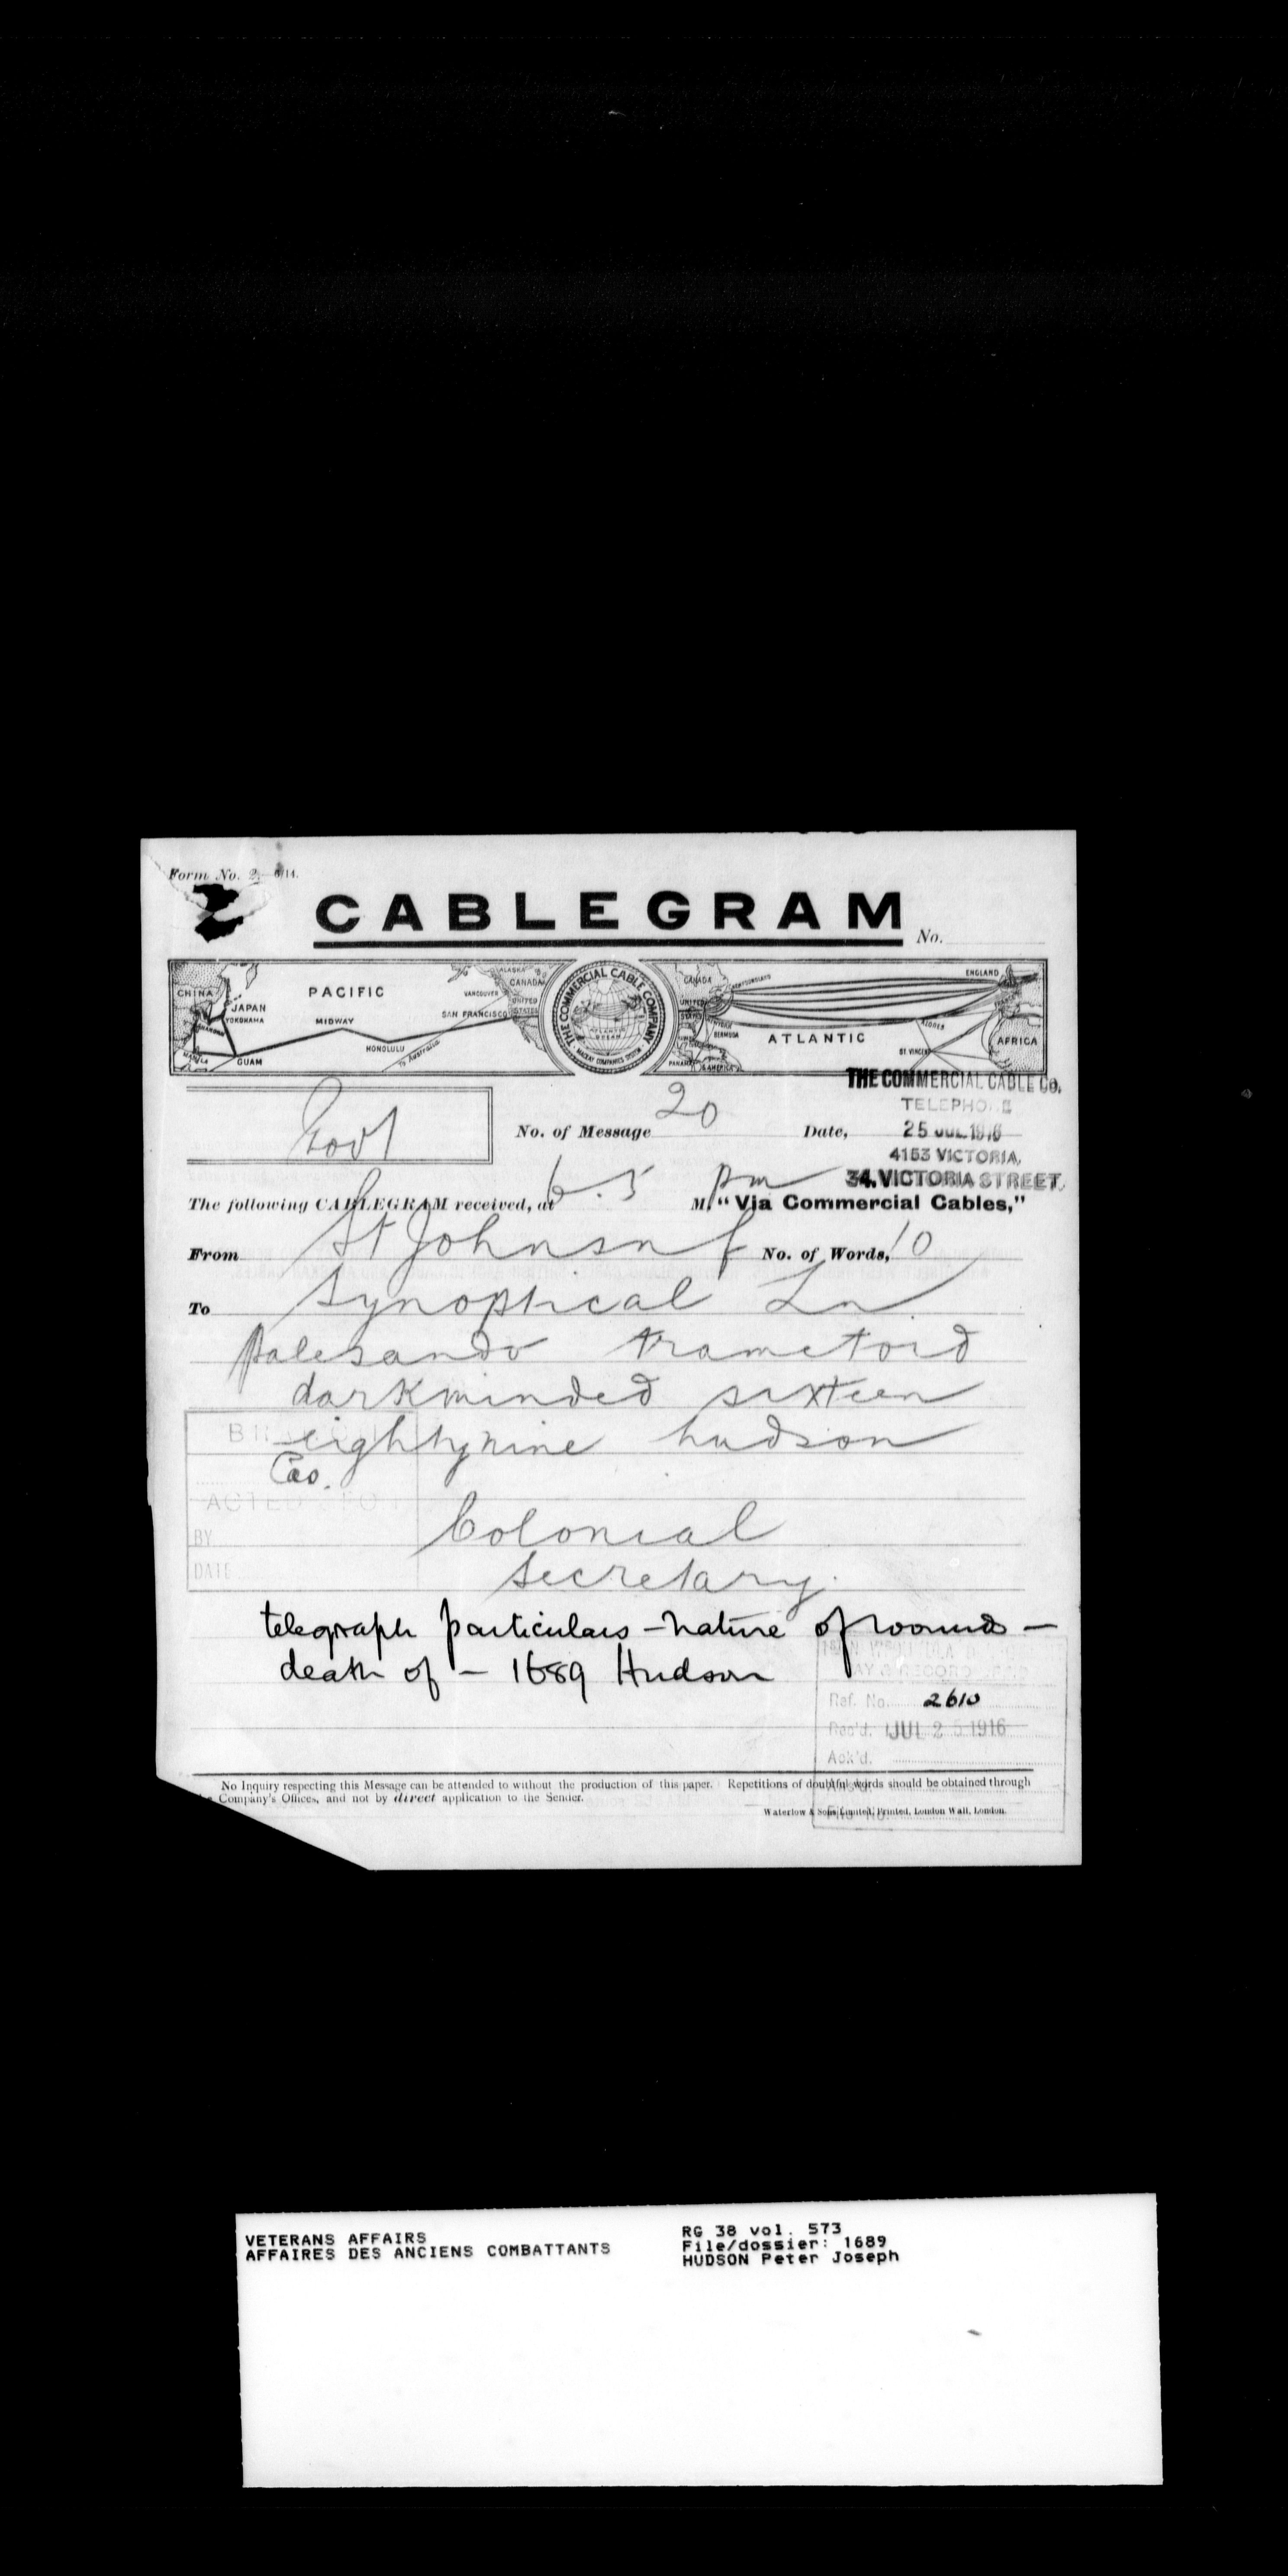 Form No. 2. 6/14.
CABLEGRAM
No.
CHINA
JAPAN
YOKOHAMA
SHANGHAI
MANILA
GUAM
PACIFIC
MIDWAY
HONOLULU
To Australia
SAN FRANCISCO
VANCOUVER
ALASKA
CANADA
UNITED STATES
THE COMMERCIAL CABLE COMPANY
MACKAY COMPANIES SYSTEM
CANADA
UNITED
NEWFOUNDLAND
BERMUDA
PANAMA
S. AMERICA
ATLANTIC
AZORES
ST. VINCENT
ENGLAND
AFRICA
THE COMMERCIAL CABLE Co.
TELEPHONE
Govt
No. of Message 20
Date, 25 JUL 1916
4153 VICTORIA,
34. VICTORIA STREET.
The following CABLEGRAM received, at 6.5 pm M, "Via Commercial Cables,"
From St Johnsnf No. of Words, 10
To Synoptical Ln
palesando trametoid
darkminded sixteen
eightynine hudson
Cas.
ACTED UPON
BY
DATE
Colonial
Secretary
telegraph particulars - nature of wounds -
death of - 1689 Hudson
PAY & RECORD
Ref. No. 2610
Rec'd. JUL 25 1916
Ack'd.
No Inquiry respecting this Message can be attended to without the production of this paper. Repetitions of doubtful words should be obtained through
Company's Offices, and not by direct application to the Sender.
Waterlow & Sons Limited, Printed, London Wall, London.
VETERANS AFFAIRS
AFFAIRES DES ANCIENS COMBATTANTS
RG 38 vol. 573
File/dossier: 1689
HUDSON Peter Joseph